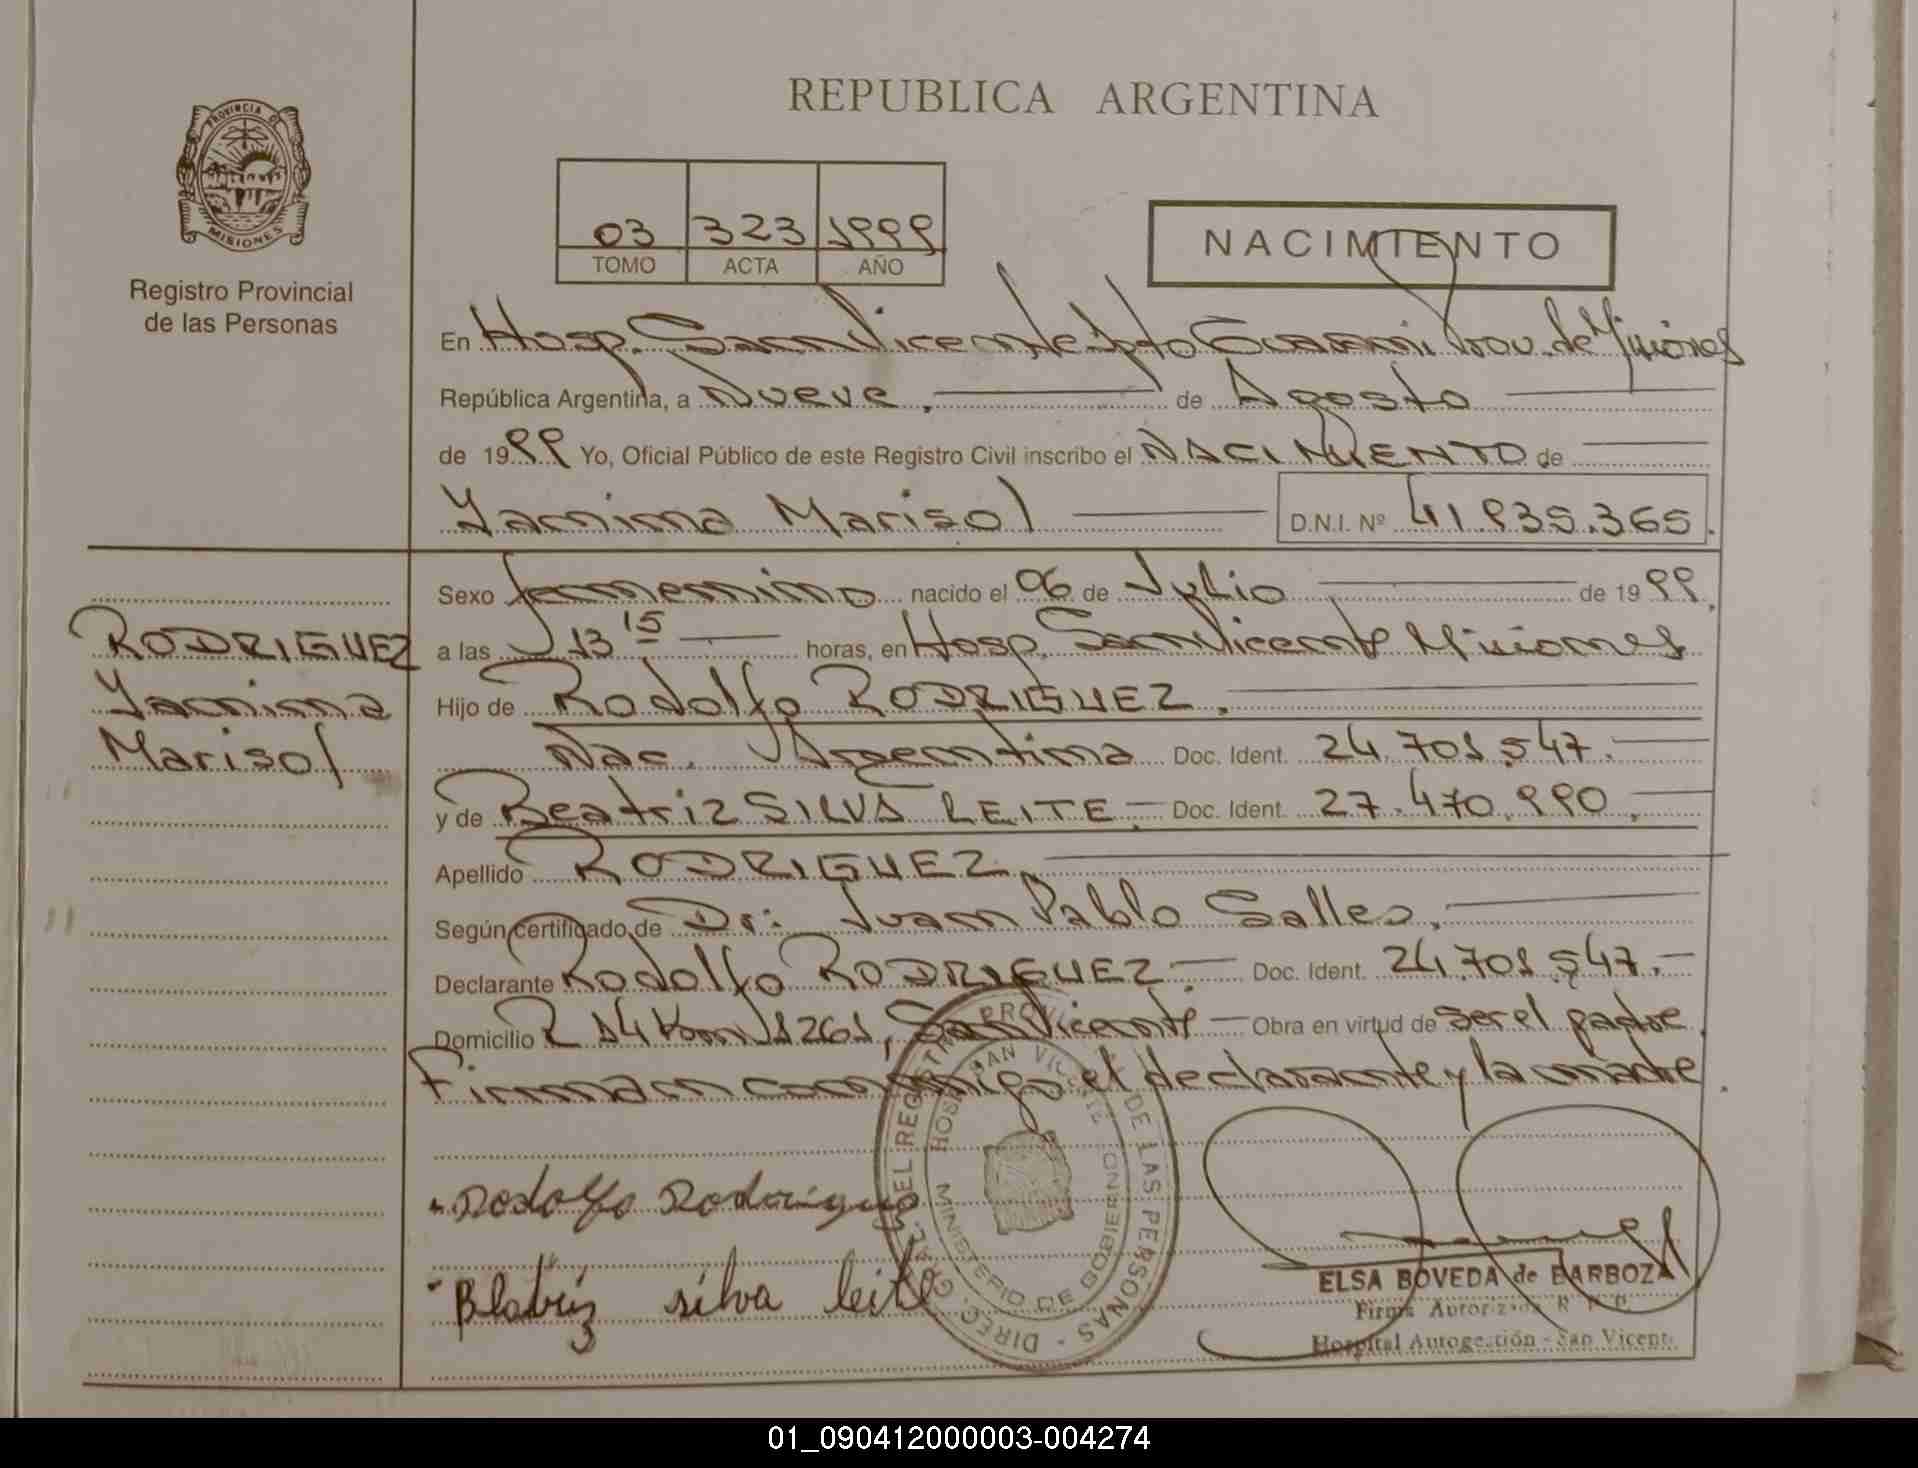 REPUBLICA ARGENTINA
PROVINCIA DE
MISIONES
Registro Provincial
de las Personas
03 323 1999
TOMO ACTA AÑO
NACIMIENTO
En Hosp. San Vicente Dpto Guarani Prov. de Misiones
República Argentina, a Nueve. de Agosto
de 1999 Yo, Oficial Público de este Registro Civil inscribo el NACIMIENTO de
Yamima Marisol D.N.I. Nº 41.935.365.
Sexo femenino nacido el 06 de Julio de 1999.
a las 13 15 horas, en Hosp. San Vicente Misiones
Hijo de Rodolfo RODRIGUEZ.
Nac. Argentina Doc. Ident. 24.701.547.
y de Beatriz SILVA LEITE. Doc. Ident. 27.470.990.
Apellido RODRIGUEZ.
Según certificado de Dr: Juan Pablo Salles.
Declarante Rodolfo RODRIGUEZ. Doc. Ident. 24.701.547.
Domicilio R 14 Km 1261, San Vicente Obra en virtud de ser el padre.
Firman conmigo el declarante y la madre.
RODRIGUEZ
Yamima
Marisol
Rodolfo Rodriguez
Beatriz silva leite
DIREC. GRAL. DEL REGISTRO PROV. DE LAS PERSONAS
HOSP. SAN VICENTE
MINISTERIO DE GOBIERNO
ELSA BOVEDA de BARBOZA
Firma Autorizada R. P. P.
Hospital Autogestión - San Vicente
01_090412000003-004274